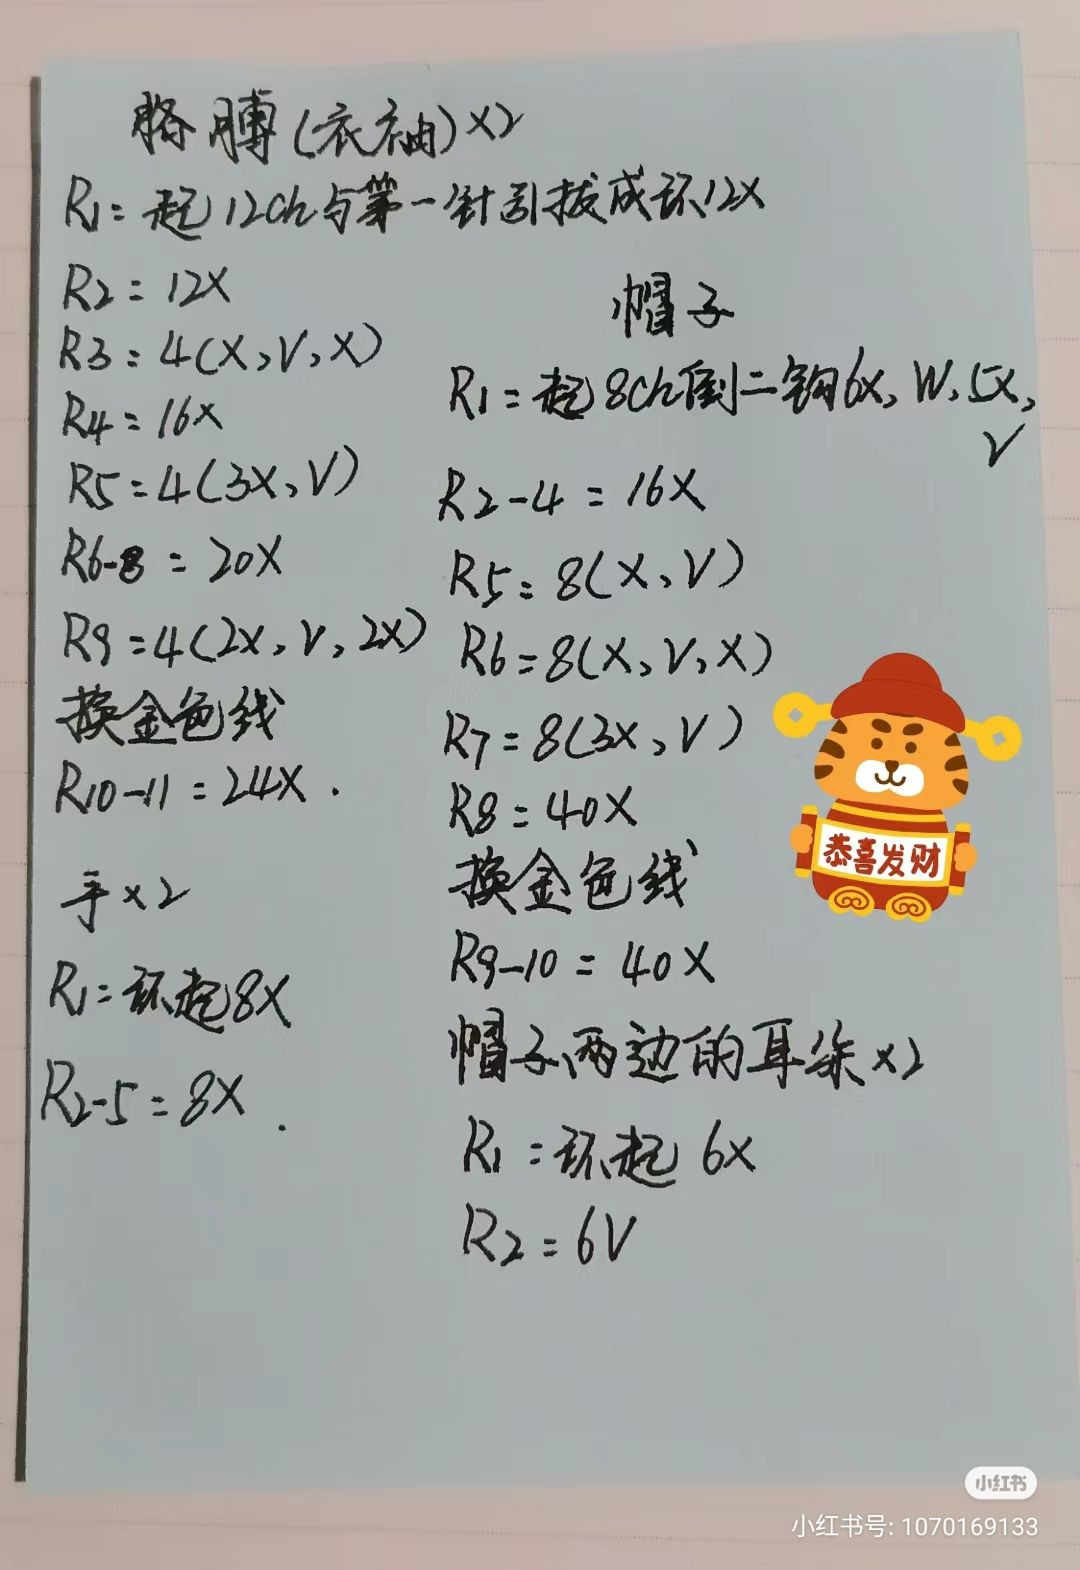 胳膊(衣袖)×2
R1=起12ch与第一针引拔成环12X
R2=12X
R3=4(X,V,X)
R4=16X
R5=4(3X,V)
R6-8=20X
R9=4(2X,V,2X)
换金色线
R10-11=24X.
手×2
R1=环起8X
R2-5=8X.
帽子
R1=起8ch倒二钩6X,W,5X,
V
R2-4=16X
R5=8(X,V)
R6=8(X,V,X)
R7=8(3X,V)
R8=40X
换金色线
R9-10=40X
帽子两边的耳朵×2
R1=环起6X
R2=6V
恭喜发财
小红书
小红书号: 1070169133